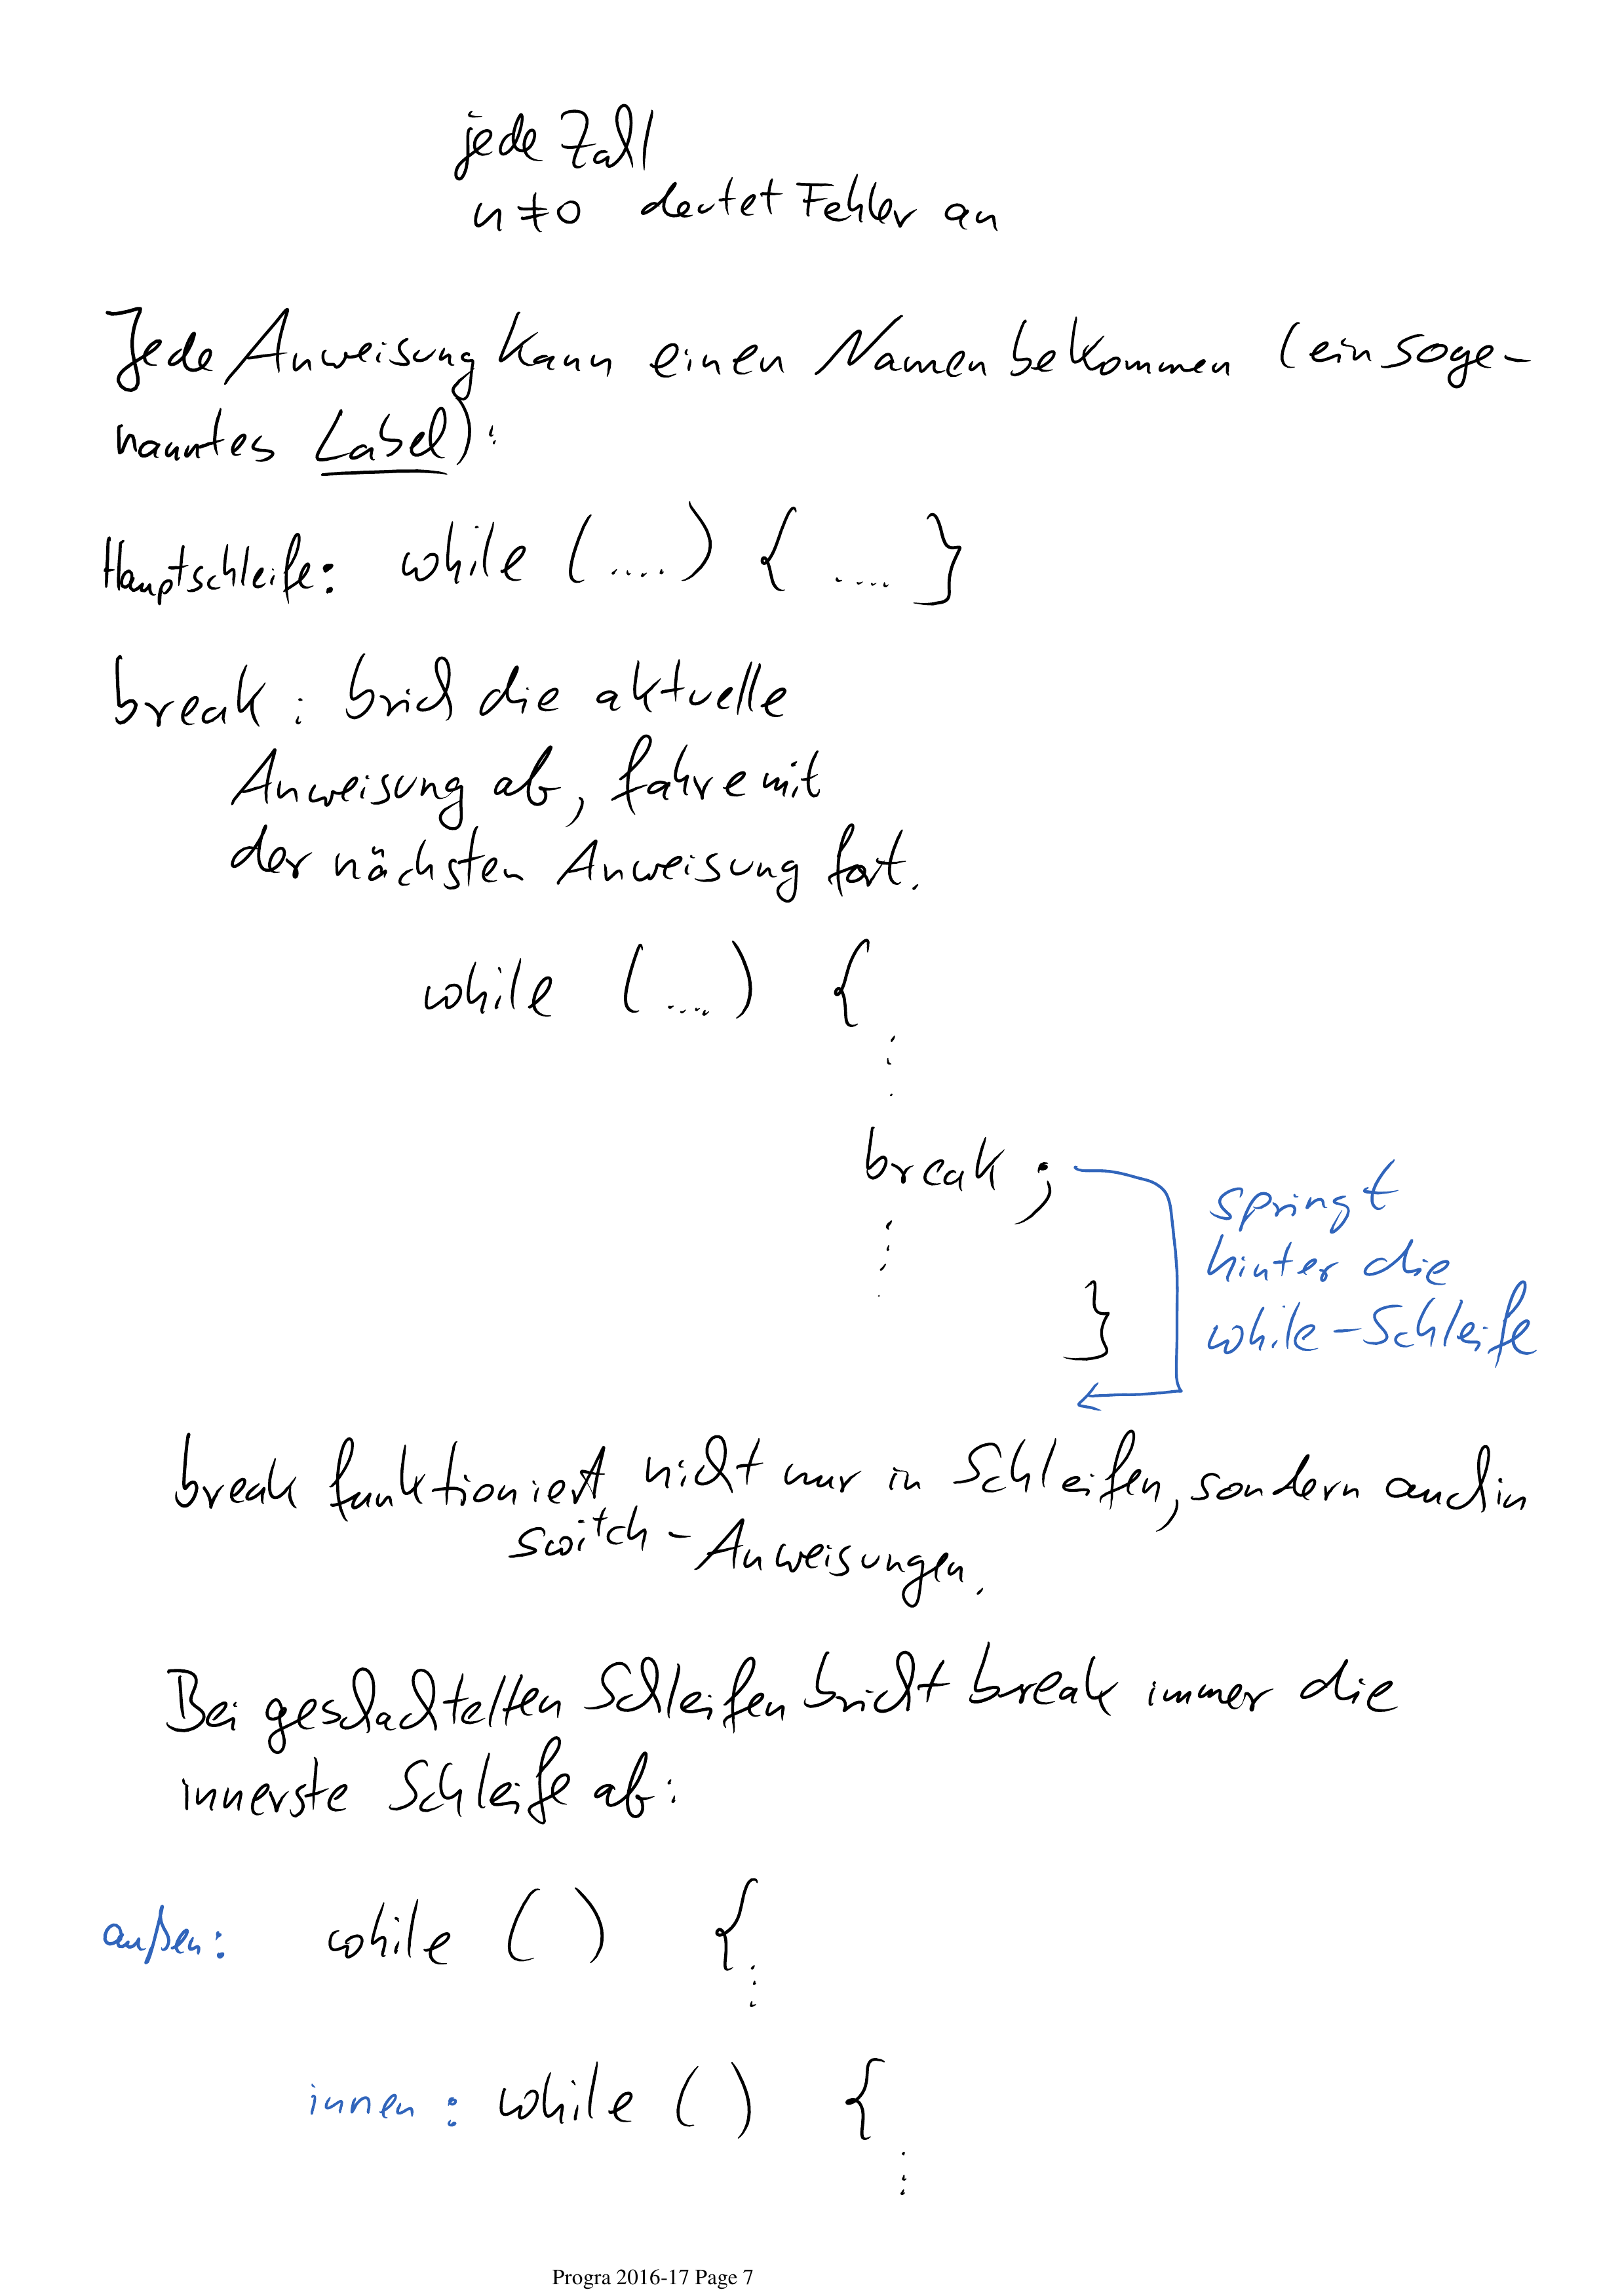 jede Zahl
n ≠ 0 deutet Fehler an
Jede Anweisung kann einen Namen bekommen (ein soge-
nanntes Label):
Hauptschleife: while (....) { .... }
break : brich die aktuelle
Anweisung ab, fahre mit
der nächsten Anweisung fort.
while (....) {
⋮
break ;
springt
hinter die
while-Schleife
⋮
}
break funktioniert nicht nur in Schleifen, sondern auch in
switch-Anweisungen.
Bei geschachtelten Schleifen bricht break immer die
innerste Schleife ab:
außen: while ( ) {
⋮
innen : while ( ) {
⋮
Progra 2016-17 Page 7